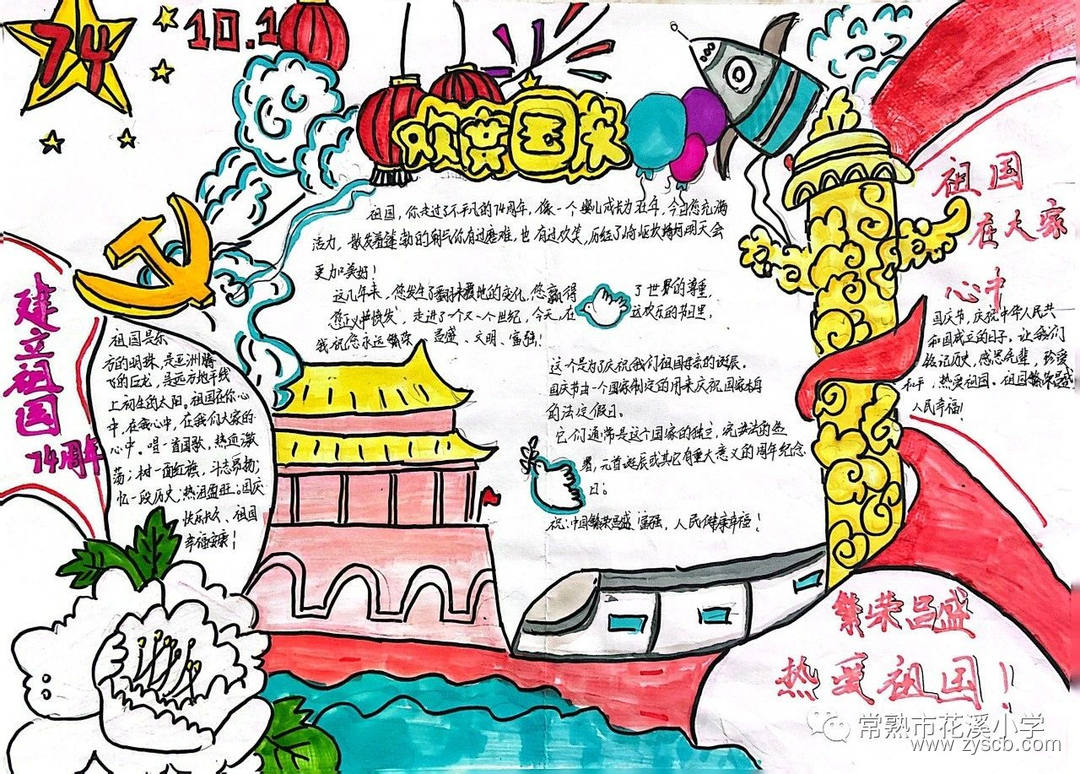 74
10.1
欢庆国庆
祖国,你走过了不平凡的74周年,像一个婴儿成长为壮年,今日您充满
活力,散发着蓬勃的朝气你有过磨难,也有过欢笑,历经了
更加美好!
这几年来,您发生了翻天覆地的变化,您赢得了世界的尊重,
您正义中焕发,走进了一个又一个世纪,今天,在这欢庆的节日里,
我祝您永远繁荣、昌盛、文明、富强!
这个是为了庆祝我们祖国母亲的诞辰。
国庆节由一个国家制定的用来庆祝国家本身
的法定假日。
它们通常是这个国家的独立,宪法的签
署,元首诞辰或其它有重大意义的周年纪念
日。
祝:中国繁荣昌盛富强,人民健康幸福!
建立祖国
74周年
祖国是东
方的明珠,是亚洲腾
飞的巨龙,是远方地平线
上初生的太阳,祖国在你心
中,在我心中,在我们大家的
心中。唱一首国歌,热血激
荡;树一面红旗,斗志昂扬;
忆一段历史,热泪盈眶。国庆
快乐长久,祖国
幸福安康!
祖国
在大家
心中
国庆节,庆祝中华人民共
和国成立的日子,让我们
铭记历史,感恩先辈,珍爱
和平,热爱祖国,祖国繁荣昌盛
人民幸福!
繁荣昌盛
热爱祖国!
常熟市花溪小学
www.zyscb.com